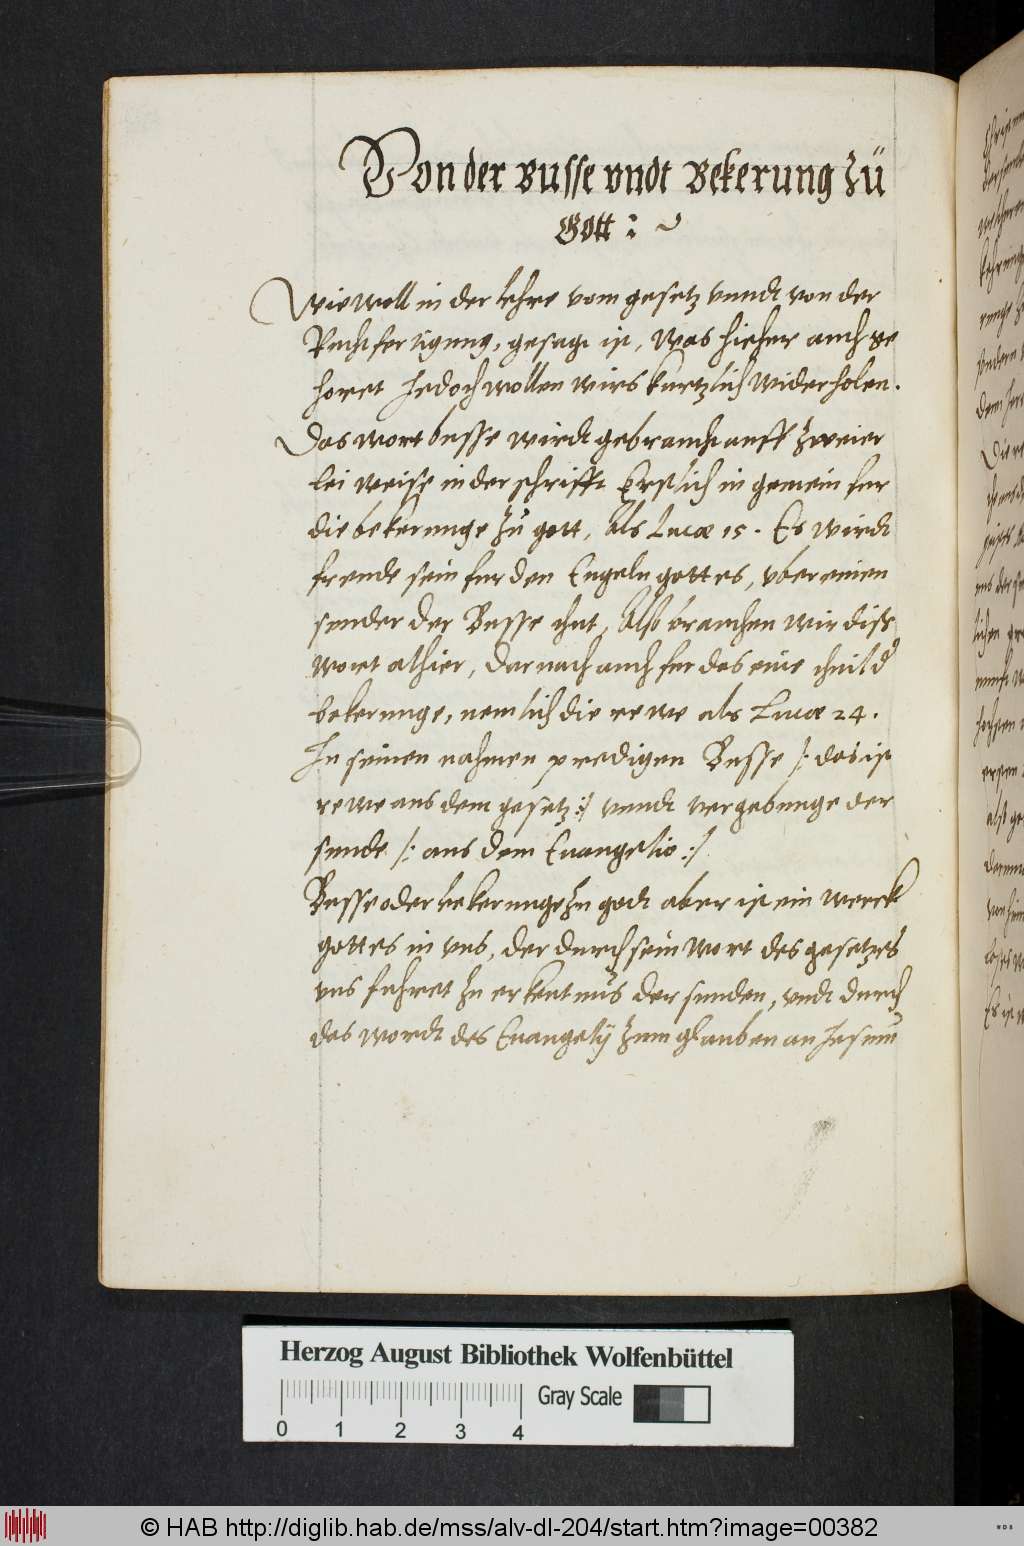 Von der Busse vndt Bekerung zü
Gott :~
Wiewoll in der lehre vom gesetz vnndt von der
Rechtfertigung, gesagt ist, was hieher auch ge
horet Jedoch wollen wirs kurtzlich widerholen.
Das wort busse wirdt gebraucht auff zweier
lei weise in der schrifft Erstlich in gemein fur
die bekerunge zu gott, Als Lucæ 15. Es wirdt
freude sein fur den Engeln gottes, vber einen
sunder der Busse thut, Also brauchen wir diss
wort alhier, Darnach auch fur das eine theil d
bekerunge, nemlich die rewe als Lucæ 24.
In seinen nahmen predigen Busse /: das ist
rewe aus dem gesetz :/ vnndt vergebunge der
sunde /: aus dem Euangelio :/
Busse oder bekerunge zu godt aber ist ein werck
gottes in vns, der durch sein wort des gesetzes
vns fuhret zu erkentnus der sunden, vndt durch
das wordt des Euangelij zum glauben an Jesum
Herzog August Bibliothek Wolfenbüttel
0 1 2 3 4
Gray Scale
© HAB http://diglib.hab.de/mss/alv-dl-204/start.htm?image=00382